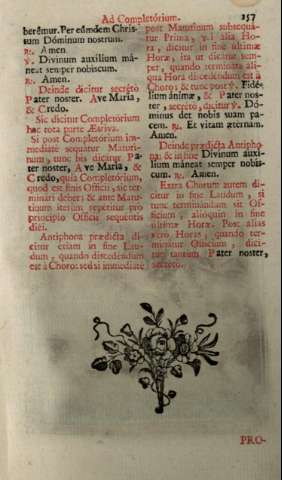 Ad Completórium. 257
berémur. Per eúmdem Chris-
tum Dóminum nostrum.
℟. Amen.
℣. Divínum auxílium má-
neat semper nobíscum.
℟. Amen.
Deinde dicitur secréto
Pater noster, Ave María,
& Credo.
Sic dicitur Completórium
hac tota parte Æstiva.
Si post Completórium im-
mediate sequitur Matuti-
num, tunc bis dicitur Pa-
ter noster, Ave María, &
Credo, quia Completórium,
quod est finis Officii, sic ter-
minari debet; & ante Matu-
tinum iterum repetitur pro
principio Officii sequentis
diei.
Antiphona prædicta di-
citur etiam in fine Lau-
dum, quando discedendum
est à Choro: sed si immediate
post Matutinum subsequa-
tur Prima, v. l alia Ho-
ra, dicitur in fine ultimæ
Horæ, ita ut dicatur sem-
per, quando terminata ali-
qua Hora discedendum est à
Choro; & tunc post ℣. Fidé-
lium ánimæ, & Pater nos-
ter, secréto, dicitur ℣. Dó-
minus det nobis suam pa-
cem. ℟. Et vitam ætérnam.
Amen.
Deinde prædicta Antipho-
na: & in fine Divínum auxí-
lium máneat semper nobís-
cum. ℟. Amen.
Extra Chorum autem di-
citur in fine Laudum, si
tunc terminandum sit Of-
ficium, alioquin in fine
ultimæ Horæ. Post alias
vero Horas, quando ter-
minatur Officium, dici-
tur tantum Pater noster,
secréto.
PRO-